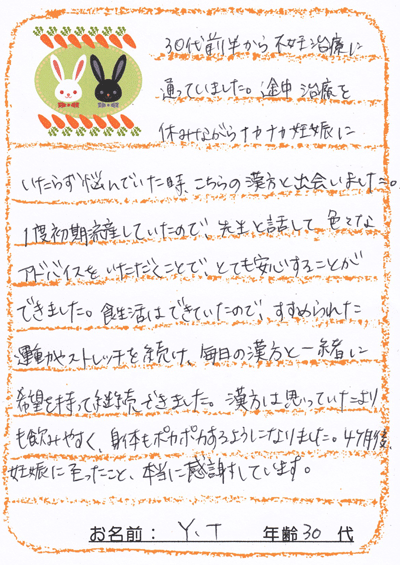 30代前半から不妊治療に
通っていました。途中 治療を
休みながらナカナカ妊娠に
いたらず悩んでいた時、こちらの漢方と出会いました。
1度初期流産していたので、先生と話して 色々な
アドバイスをいただくことで、とても安心することが
できました。食生活はできていたので、すすめられた
運動やストレッチを続け、毎日の漢方と一緒に
希望を持って継続できました。漢方は思っていたより
も飲みやすく、身体もポカポカするようになりました。4ヶ月後、
妊娠に至ったこと、本当に感謝しています。
お名前： Y.T 年齢 30 代